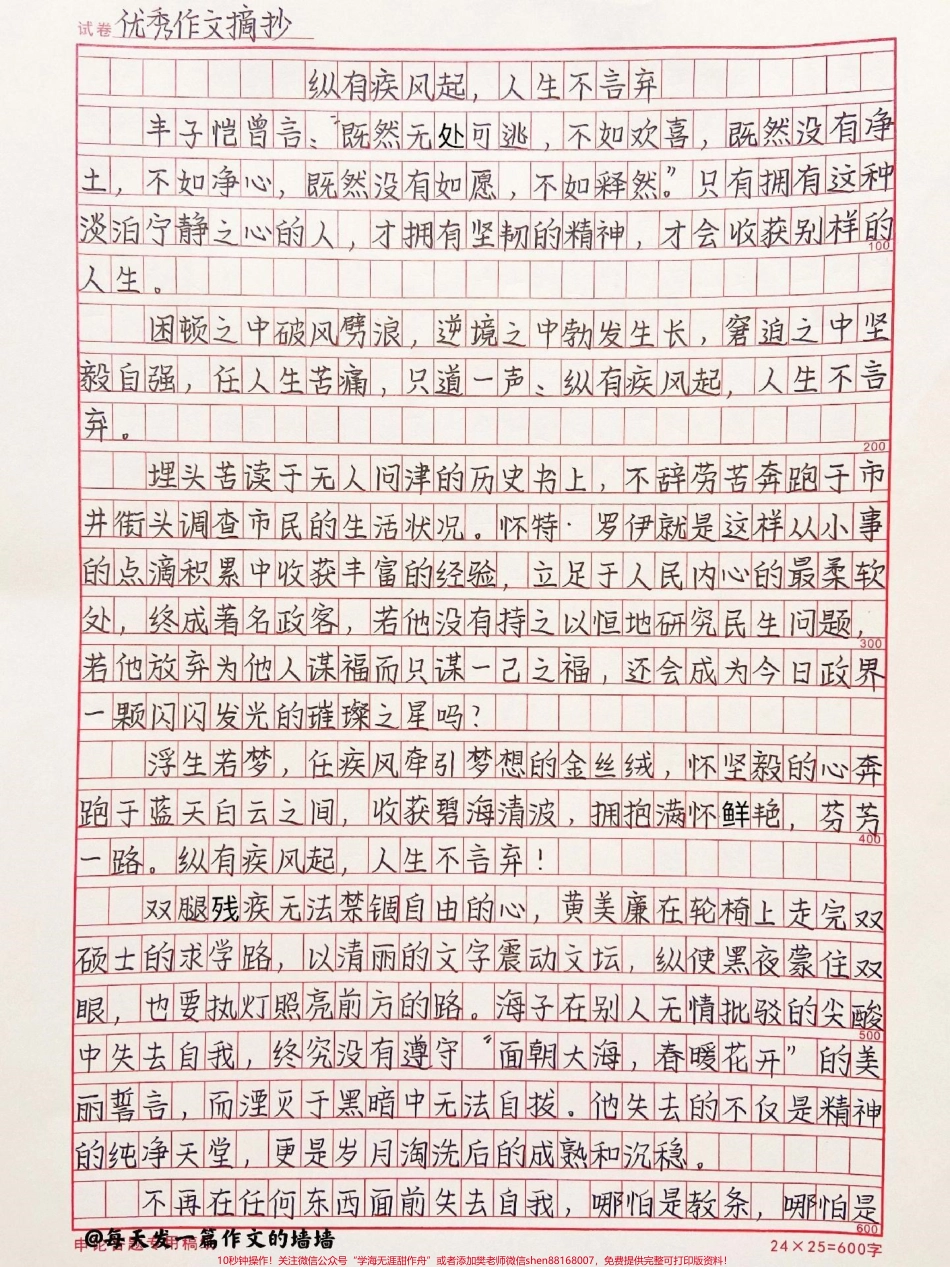 试卷 优秀作文摘抄
纵有疾风起，人生不言弃
丰子恺曾言："既然无处可逃，不如欢喜，既然没有净
土，不如净心，既然没有如愿，不如释然。"只有拥有这种
淡泊宁静之心的人，才拥有坚韧的精神，才会收获别样的
100
人生。
困顿之中破风劈浪，逆境之中勃发生长，窘迫之中坚
毅自强，任人生苦痛，只道一声：纵有疾风起，人生不言
弃。
200
埋头苦读于无人问津的历史书上，不辞劳苦奔跑于市
井街头调查市民的生活状况。怀特·罗伊就是这样从小事
的点滴积累中收获丰富的经验，立足于人民内心的最柔软
处，终成著名政客，若他没有持之以恒地研究民生问题，
300
若他放弃为他人谋福而只谋一己之福，还会成为今日政界
一颗闪闪发光的璀璨之星吗？
浮生若梦，任疾风牵引梦想的金丝绒，怀坚毅的心奔
跑于蓝天白云之间，收获碧海清波，拥抱满怀鲜艳，芬芳
400
一路。纵有疾风起，人生不言弃！
双腿残疾无法禁锢自由的心，黄美廉在轮椅上走完双
硕士的求学路，以清丽的文字震动文坛，纵使黑夜蒙住双
眼，也要执灯照亮前方的路。海子在别人无情批驳的尖酸
500
中失去自我，终究没有遵守"面朝大海，春暖花开"的美
丽誓言，而湮灭于黑暗中无法自拔。他失去的不仅是精神
的纯净天堂，更是岁月淘洗后的成熟和沉稳。
不再在任何东西面前失去自我，哪怕是教条，哪怕是
600
@每天发一篇作文的墙墙
24×25=600字
10秒钟操作！关注微信公众号"学海无涯甜作舟"或者添加樊老师微信shen88168007，免费提供完整可打印版资料！